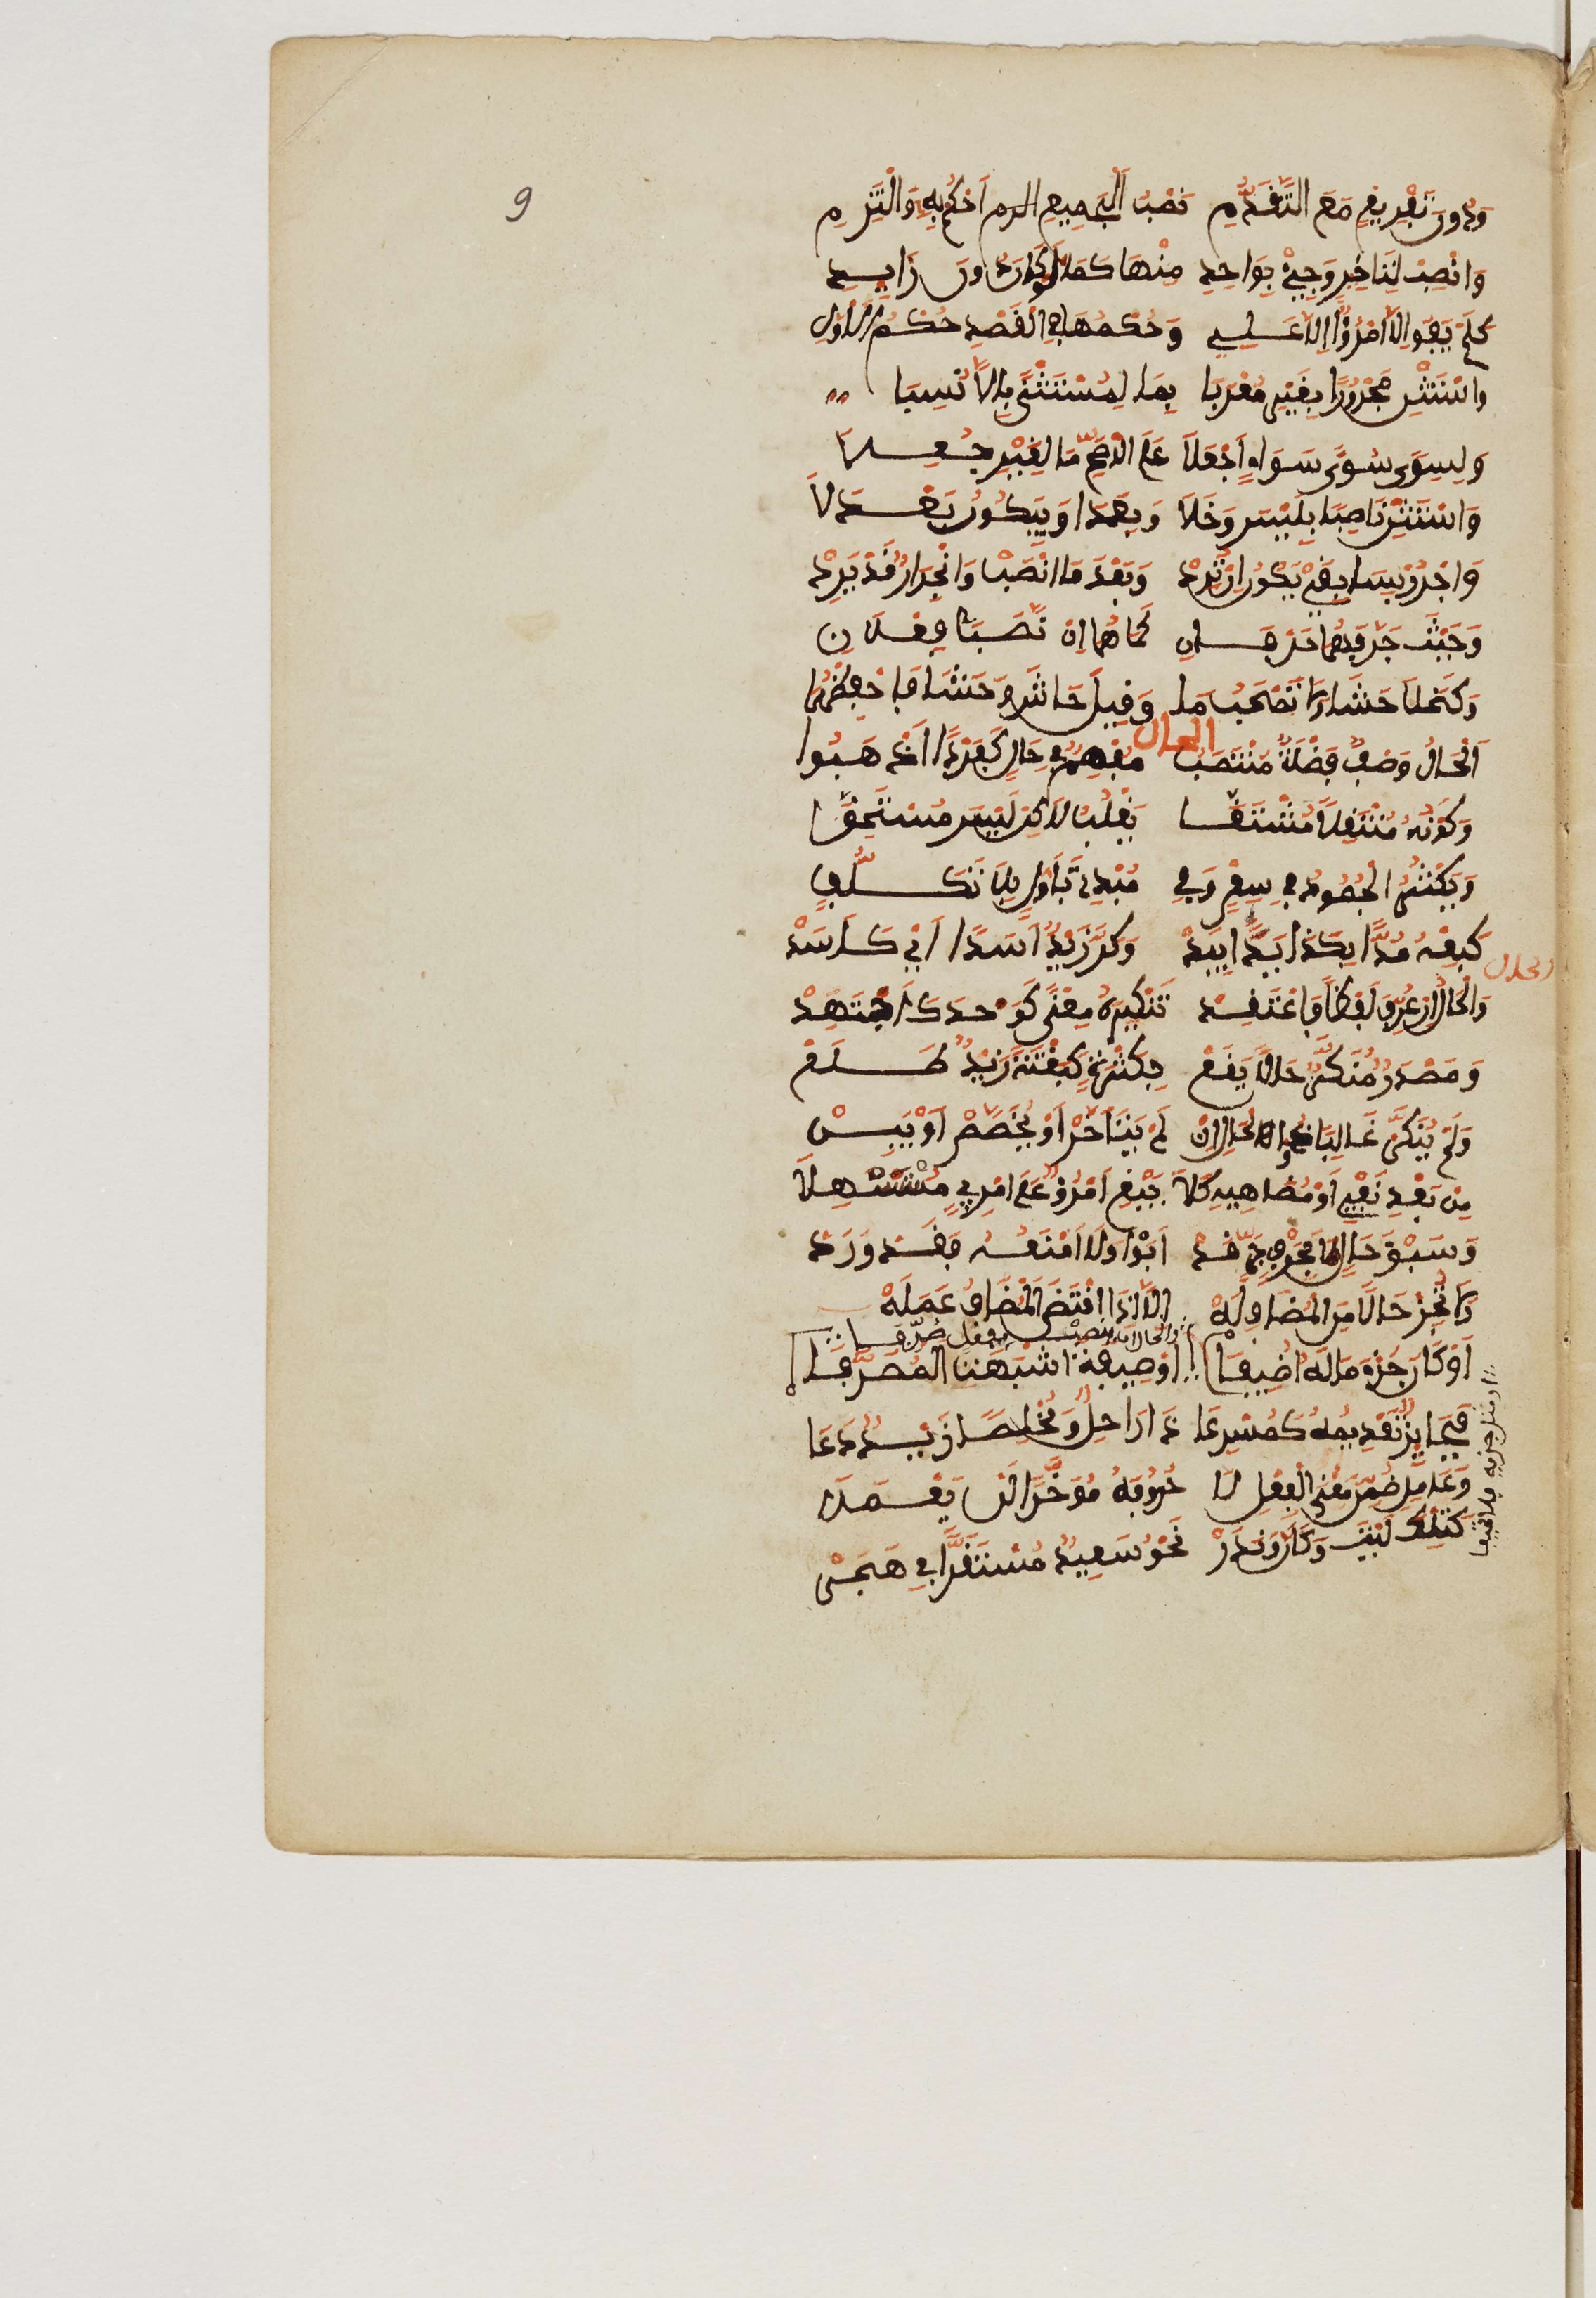 9
وَدُونَ تَفْرِيغٍ مَعَ التَّقَدُّمِ نَصْبَ الْجَمِيعِ احْكُمْ بِهِ وَالْتَزِمِ
وَانْصِبْ لِتَأْخِيرٍ وَجِئْ بِوَاحِدِ مِنْهَا كَمَا لَوْ كَانَ دُونَ زَايِدِ
كَلَمْ يَفُوا إِلَّا امْرُؤٌ إِلَّا عَلِي وَحُكْمُهَا فِي الْقَصْدِ حُكْمُ الْأَوَّلِ
وَاسْتَثْنِ مَجْرُورًا بِغَيْرٍ مُعْرَبَا بِمَا لِمُسْتَثْنًى بِإِلَّا نُسِبَا
وَلِسِوًى سُوًى سَوَاءٍ اجْعَلَا عَلَى الْأَصَحِّ مَا لِغَيْرٍ جُعِلَا
وَاسْتَثْنِ نَاصِبًا بِلَيْسَ وَخَلَا وَبِعَدَا وَبِيَكُونُ بَعْدَ لَا
وَاجْرُرْ بِسَابِقَيْ يَكُونُ إِنْ تُرِدْ وَبَعْدَ مَا انْصِبْ وَانْجِرَارٌ قَدْ يَرِدْ
وَحَيْثُ جَرَّ فَهُمَا حَرْفَانِ كَمَا هُمَا إِنْ نَصَبَا فِعْلَانِ
وَكَخَلَا حَاشَا وَلَا تَصْحَبُ مَا وَقِيلَ حَاشَ وَحَشَا فَاحْفَظْهُمَا
الحال
اَلْحَالُ وَصْفٌ فَضْلَةٌ مُنْتَصِبُ مُفْهِمُ فِي حَالٍ كَفَرْدًا أَذْهَبُ
وَكَوْنُهُ مُنْتَقِلًا مُشْتَقَّا يَغْلِبُ لَاكِنْ لَيْسَ مُسْتَحَقَّا
وَيَكْثُرُ الْجُمُودُ فِي سِعْرٍ وَفِي مُبْدِي تَأَوُّلٍ بِلَا تَكَلُّفِ
كَبِعْهُ مُدًّا بِكَذَا يَدًا بِيَدْ وَكَرَّ زَيْدٌ أَسَدًا أَيْ كَأَسَدْ
الحال
وَالْحَالُ إِنْ عُرِّفَ لَفْظًا فَاعْتَقِدْ تَنْكِيرَهُ مَعْنًى كَوَحْدَكَ اجْتَهِدْ
وَمَصْدَرٌ مُنَكَّرٌ حَالًا يَقَعْ بِكَثْرَةٍ كَبَغْتَةً زَيْدٌ طَلَعْ
وَلَمْ يُنَكَّرْ غَالِبًا ذُو الْحَالِ إِنْ لَمْ يَتَأَخَّرْ أَوْ يُخَصَّصْ أَوْ يَبِنْ
مِنْ بَعْدِ نَفْيٍ أَوْ مُضَاهِيهِ كَلَا يَبْغِ امْرُؤٌ عَلَى امْرِئٍ مُسْتَسْهِلَا
وَسَبْقَ حَالٍ مَا بِحَرْفٍ جُرَّ قَدْ أَبَوْا وَلَا أَمْنَعُهُ فَقَدْ وَرَدْ
وَلَا تُجِزْ حَالًا مِنَ الْمُضَافِ لَهْ إِلَّا إِذَا اقْتَضَى الْمُضَافُ عَمَلَهْ
أَوْ كَانَ جُزْءَ مَا لَهُ أُضِيفَا أَوْ صِفَةٍ أَشْبَهَتِ الْمُصَرَّفَا
والحال ان ينصب بفعل صرفا
او مثل جزئه فلا تحيفا
فَجَايِزٌ تَقْدِيمُهُ كَمُسْرِعَا ذَا رَاحِلٌ وَمُخْلِصًا زَيْدٌ دَعَا
وَعَامِلٌ ضُمِّنَ مَعْنَى الْفِعْلِ لَا حُرُوفَهُ مُؤَخَّرًا لَنْ يَعْمَلَا
كَتِلْكَ لَيْتَ وَكَأَنَّ وَنَدَرْ نَحْوُ سَعِيدٌ مُسْتَقِرًّا فِي هَجَرْ